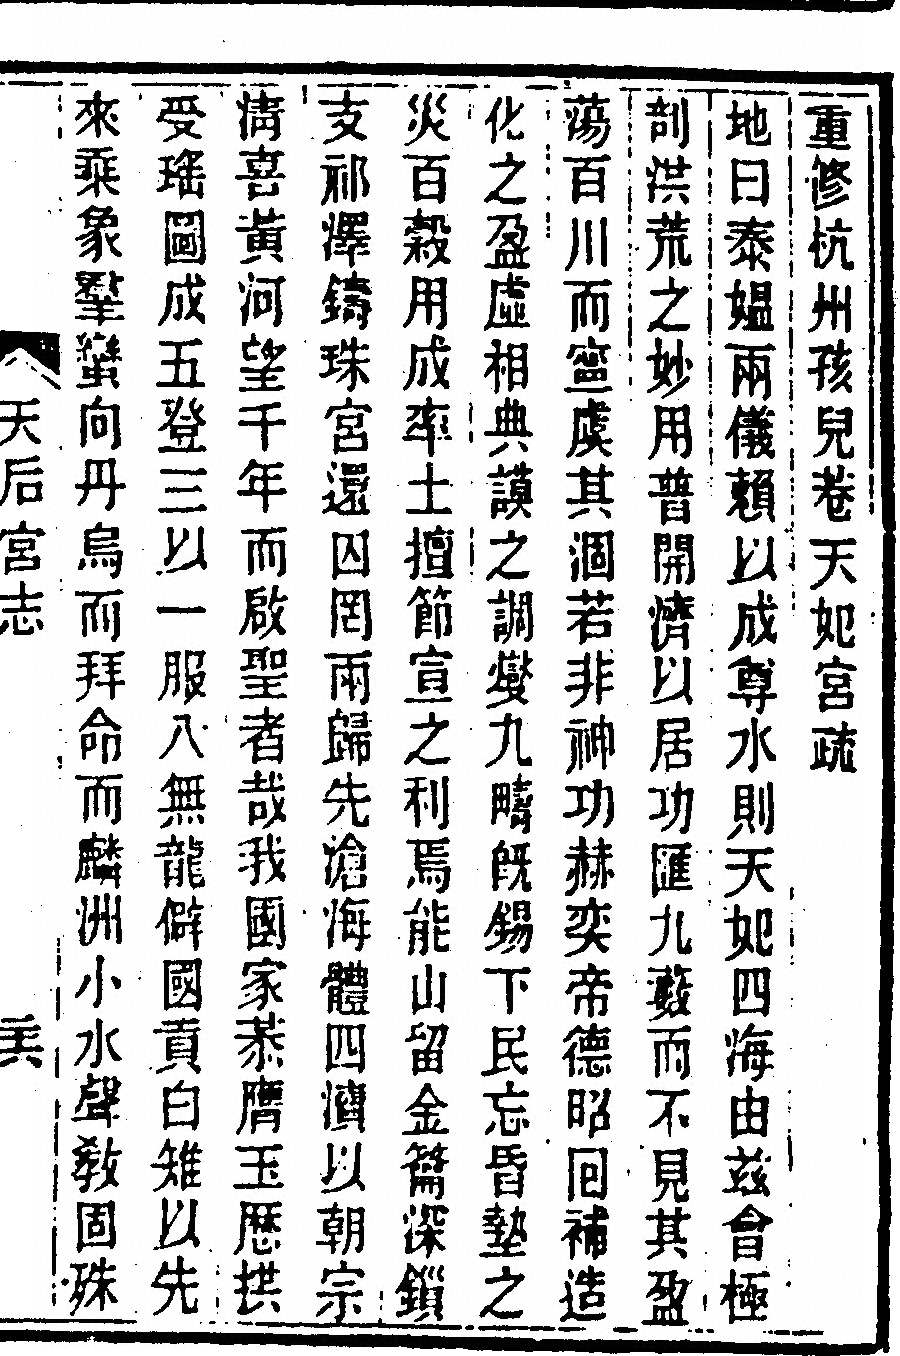 重修杭州孩兒巷天妃宮疏
地曰泰媼兩儀賴以成尊水則天妃四海由茲會極
剖洪荒之妙用普開濟以居功匯九藪而不見其盈
蕩百川而寧虞其涸若非神功赫奕帝德昭囘補造
化之盈虛相典謨之調燮九疇既錫下民忘昏墊之
災百穀用成率土擅節宣之利焉能山留金篇深鎖
支祁澤鑄珠宮還囚罔兩歸先滄海體四瀆以朝宗
淸喜黃河望千年而啟聖者哉我國家恭膺玉歷拱
受瑤圖成五登三以一服八無龍僻國貢白雉以先
來乘象羣蠻向丹烏而拜命而麟洲小水聲敎固殊
天后宮志